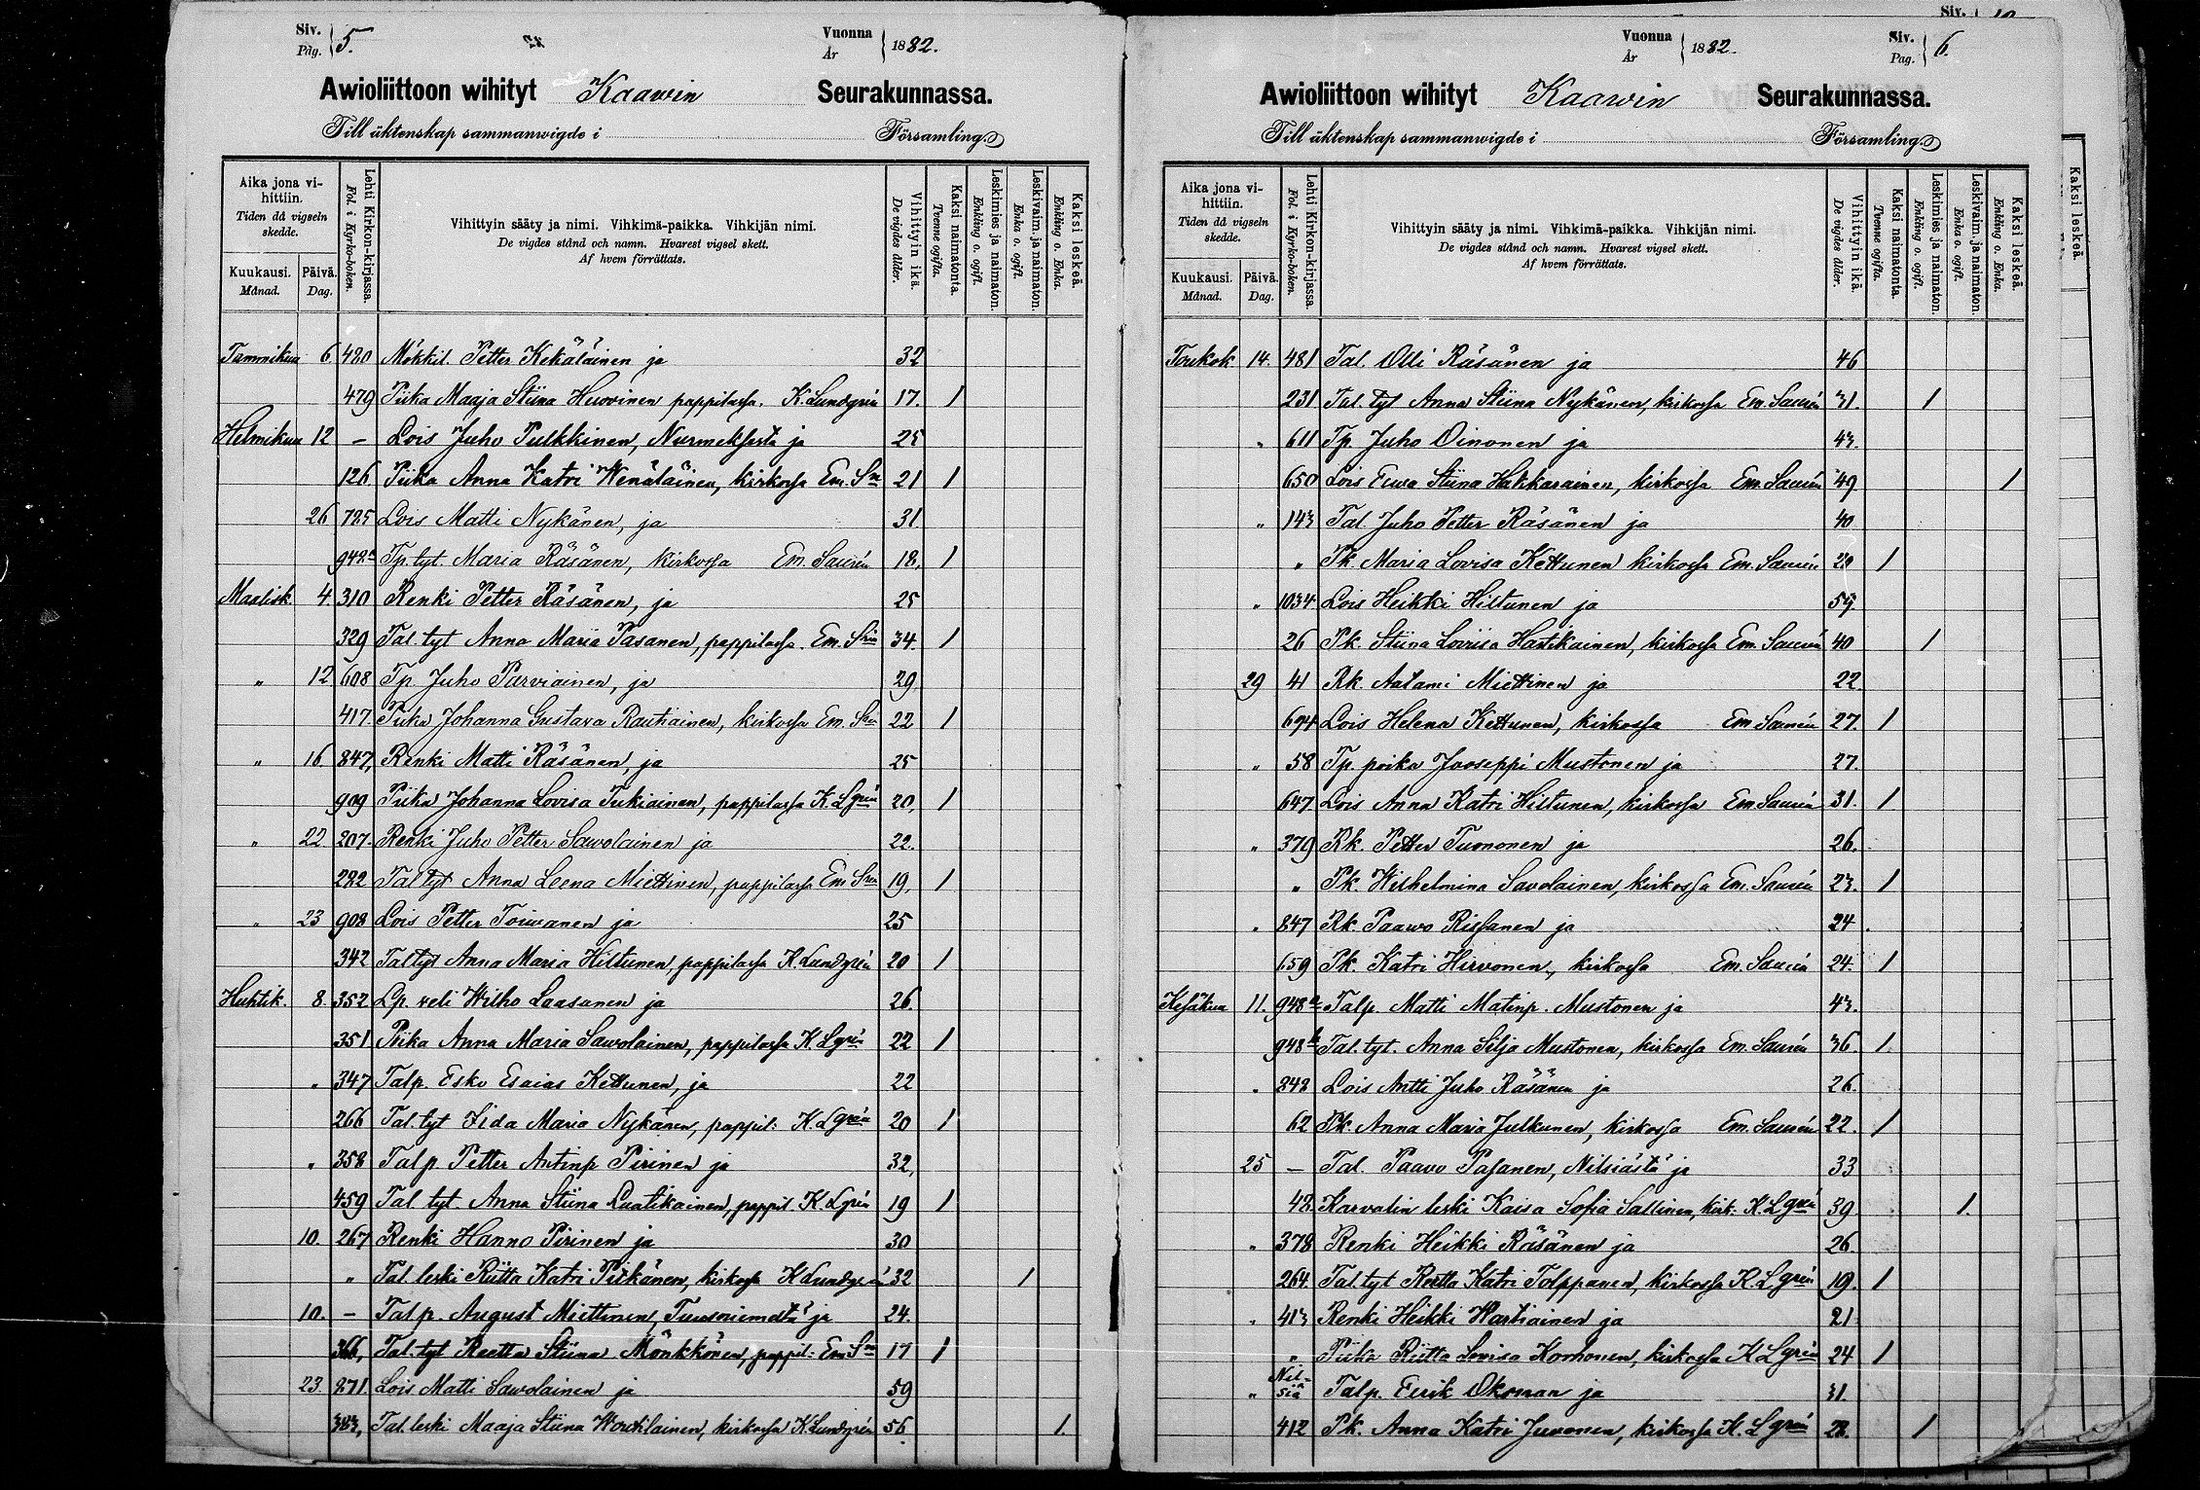 Siv.
Pag. 5.
Vuonna
År 1882.
Awioliittoon wihityt Kaawin Seurakunnassa.
Till äktenskap sammanwigde i Församling.
Aika jona vihittiin.
Tiden då vigseln skedde.
Kuukausi.
Månad.
Päivä.
Dag.
Lehti Kirkon-kirjassa.
Fol. i Kyrko-boken.
Vihittyin sääty ja nimi. Vihkimä-paikka. Vihkijän nimi.
De vigdes stånd och namn. Hvarest vigsel skett.
Af hvem förrättats.
Vihittyin ikä.
De vigdes ålder.
Kaksi naimatonta.
Tvenne ogifta.
Leskimies ja naimaton.
Enkling o. ogift.
Leskivaim. ja naimaton.
Enka o. ogift.
Kaksi leskeä.
Enkling o. Enka.
Tammikuu 6 480 Mökkil. Petter Kekäläinen ja 32
479 Piika Maaja Stiina Huovinen pappilassa. K. Lundgrén 17. 1
Helmikuu 12 – Lois Juho Pulkkinen, Nurmeksesta ja 25
126 Piika Anna Katri Wenäläinen, kirkossa Em. Sn 21 1
26 725 Lois Matti Nykänen, ja 31
942a Tp. tyt. Maria Räsänen, kirkossa Em. Saurén 18. 1
Maalisk. 4 310 Renki Petter Räsänen, ja 25
329 Tal. tyt Anna Maria Pasanen, pappilassa. Em. Sén 34. 1
" 12 608 Tp. Juho Parviainen, ja 29
417. Piika Johanna Gustava Rautiainen, kirkossa Em. Sn 22 1
" 16 847, Renki Matti Räsänen, ja 25
909 Piika Johanna Lovisa Tukiainen, pappilassa K. Lgrén 20, 1
" 22 207. Renki Juho Petter Sawolainen ja 22.
282 Tal tyt Anna Leena Miettinen, pappilassa Em Sn 19, 1
" 23 908 Lois Petter Toiwanen ja 25
342 Tal tyt Anna Maria Hiltunen, pappilassa K. Lundgrén 20 1
Huhtik. 8. 352 Lp. veli Wilho Laasanen ja 26.
351 Piika Anna Maria Sawolainen, pappilassa K. Lgrén 22 1
" 347 Talp. Esko Esaias Kettunen, ja 22
266 Tal. tyt Iida Maria Nykänen, pappil: K. Lgrén 20 1
" 358 Talp. Petter Antinp Pirinen ja 32,
459 Tal. tyt. Anna Stiina Luatikainen, pappil. K. Lgrén 19 1
10. 267 Renki Hanno Pirinen ja 30
" Tal. leski Riitta Katri Piikänen, kirkossa K Lundgrén 32 1
10. – Talp. August Miettinen, Tuusniemeltä ja 24.
366, Tal. tyt Reetta Stiina Mönkkönen, pappil: Em Sn 17 1
23. 871. Lois Matti Sawolainen ja 59
383, Tal. leski Maaja Stiina Woutilainen, kirkossa K. Lundgrén 56. 1.
Vuonna
År 1882.
Siv.
Pag. 6.
Awioliittoon wihityt Kaarvin Seurakunnassa.
Till äktenskap sammanwigde i Församling.
Aika jona vihittiin.
Tiden då vigseln skedde.
Kuukausi.
Månad.
Päivä.
Dag.
Lehti Kirkon-kirjassa.
Fol. i Kyrko-boken.
Vihittyin sääty ja nimi. Vihkimä-paikka. Vihkijän nimi.
De vigdes stånd och namn. Hvarest vigsel skett.
Af hvem förrättats.
Vihittyin ikä.
De vigdes ålder.
Kaksi naimatonta.
Tvenne ogifta.
Leskimies ja naimaton.
Enkling o. ogift.
Leskivaim. ja naimaton.
Enka o. ogift.
Kaksi leskeä.
Enkling o. Enka.
Toukok 14. 481 Tal. Olli Räsänen ja 46
231 Tal. tyt Anna Stiina Nykänen, kirkossa Em. Saurén 31. 1
" 611 Tp. Juho Oinonen ja 43.
650 Lois Eewa Stiina Hakkarainen, kirkossa Em. Saurén 49 1
" 143 Tal. Juho Petter Räsänen ja 40
" Pk. Maria Lovisa Kettunen kirkossa Em. Saurén 20 1
" 1034 Lois Heikki Hiltunen ja 59
26 Pk. Stiina Loviisa Hartikainen, kirkossa Em. Saurén 40 1
29 41 Rk. Aatami Miettinen ja 22.
694 Lois Helena Kettunen, kirkossa Em Saurén 27. 1
" 58 Tp. poika Jooseppi Mustonen ja 27.
647 Lois Anna Katri Hiltunen, kirkossa Em Saurén 31. 1
" 379 Rk. Petter Tuononen ja 26.
" Pk. Wilhelmina Savolainen, kirkossa Em. Saurén 23. 1
" 847 Rk. Paawo Rissanen ja 24
659 Pk. Katri Hirvonen, kirkossa Em. Saurén 24. 1
Kesäkuu 11. 948a Talp. Matti Matinp. Mustonen ja 43.
948b Tal. tyt. Anna Silja Mustonen, kirkossa Em. Saurén 36. 1.
" 848 Lois Antti Juho Räsänen ja 26.
62 Pk. Anna Maria Julkunen, kirkossa Em. Saurén 22. 1
25 – Tal. Paavo Pasanen, Nilsiästä ja 33
42. Karvalin leski Kaisa Sofia Sallinen, kirk: K. Lgrén 39 1.
" 378 Renki Heikki Räsänen ja 26.
264. Tal. tyt Reetta Katri Tolppanen, kirkossa K. Lgrén 19. 1
" 413 Renki Heikki Wartiainen ja 21
" Piika Riitta Lovisa Korhonen, kirkossa K Lgrén 24 1
" Nilsiä Talp. Eerik Oksman ja 31.
412 Pk. Anna Katri Juvonen, kirkossa K. Lgrén 28. 1
Siv. 10
Kaksi leskeä.